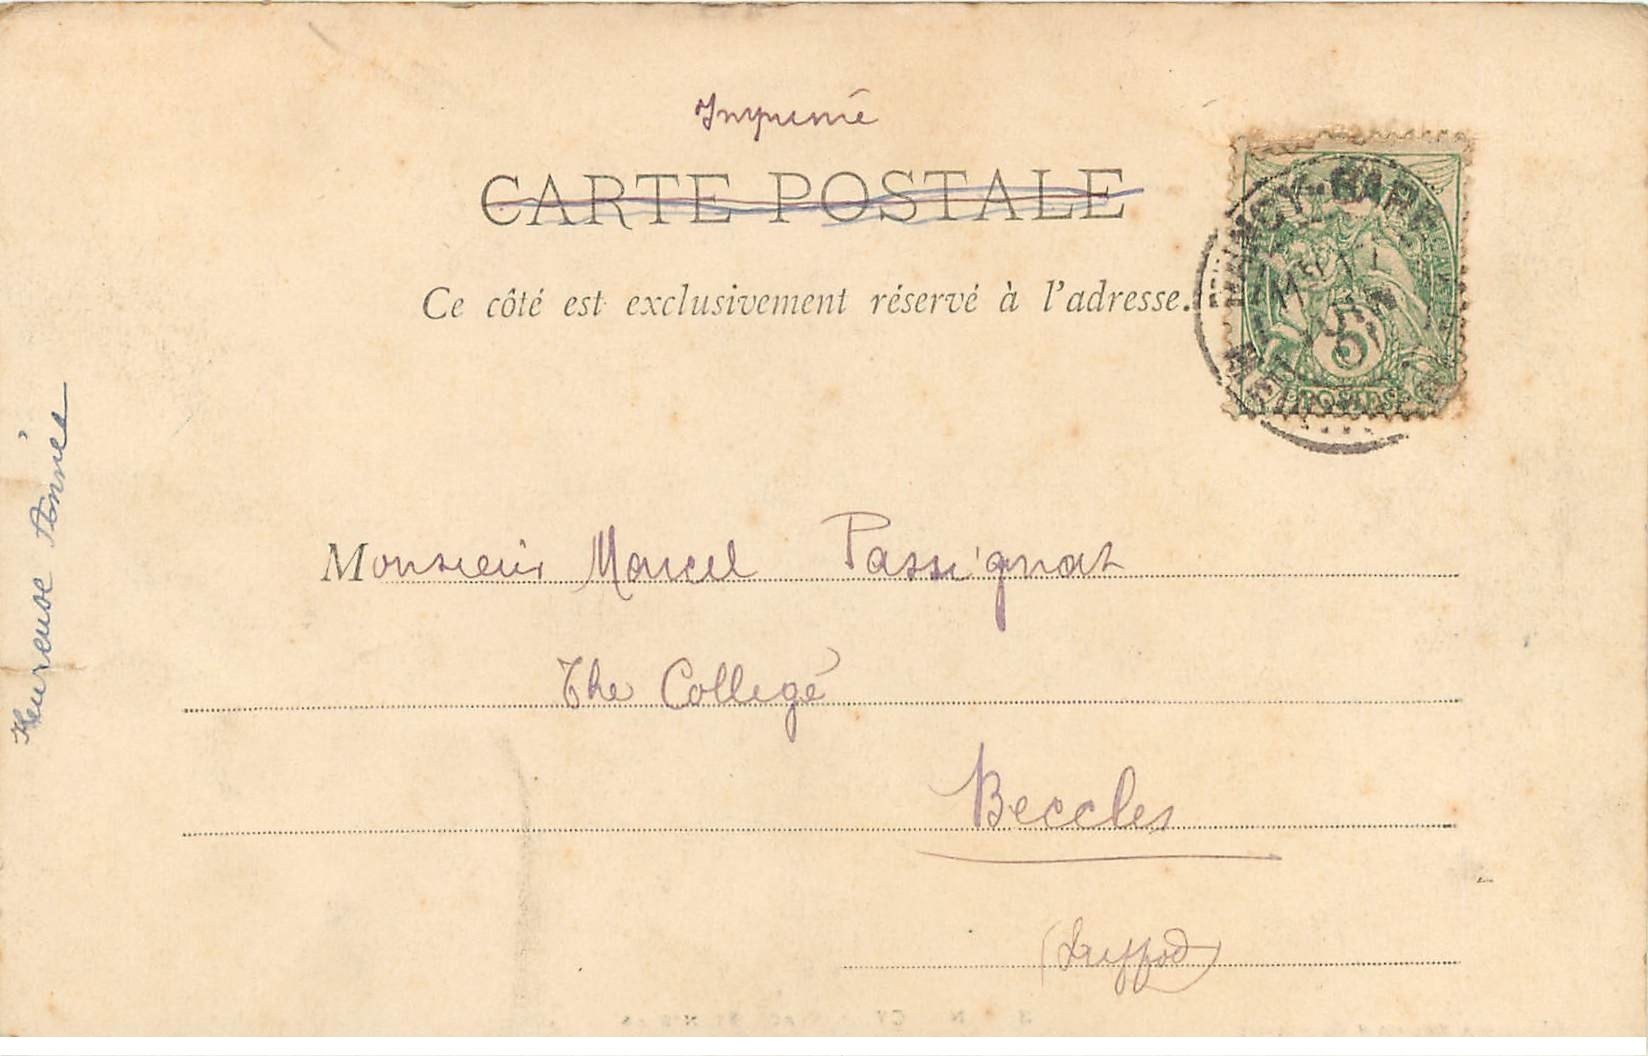 Imprimé
CARTE POSTALE
Ce côté est exclusivement réservé à l'adresse.
NANCY-GARE
5
POSTES
Monsieur Marcel Passignat
The College
Beccles
(Suffod)
Heureuse Année